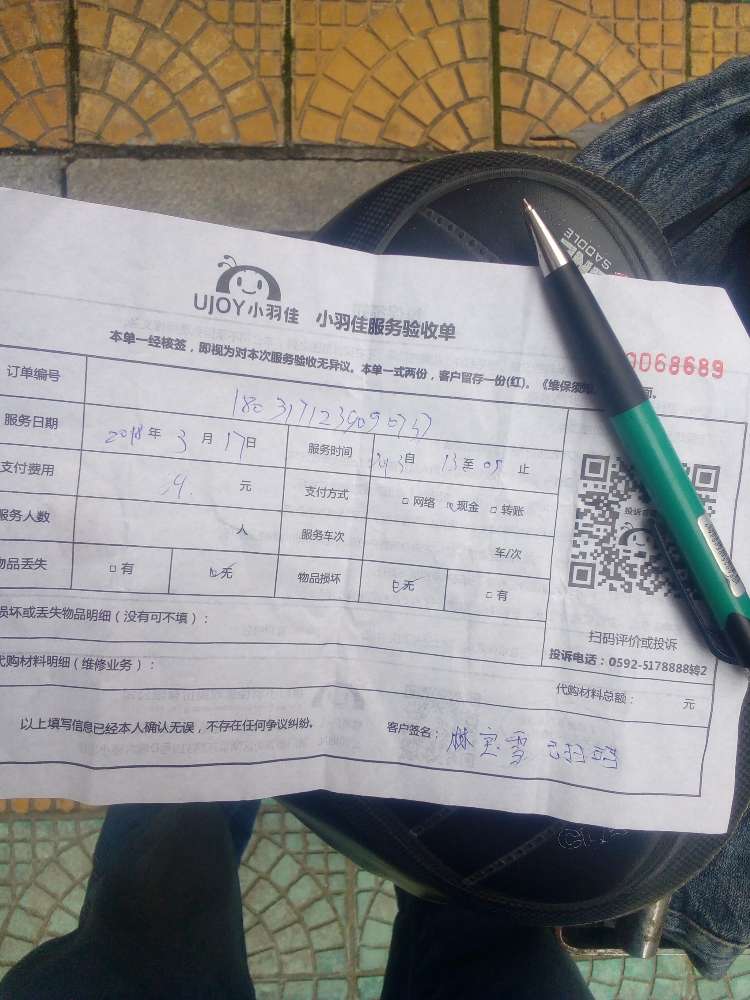 SADDLE
UJOY小羽佳 小羽佳服务验收单
本单一经核签，即视为对本次服务验收无异议。本单一式两份，客户留存一份(红)。《维保须
0068689
订单编号
服务日期 2018年 3月 17日 服务时间 自 13至 05 止
支付费用 元 支付方式 □网络 现金 □转账
服务人数 人 服务车次 车/次
物品丢失 □有 无 物品损坏 无 □有
损坏或丢失物品明细（没有可不填）：
代购材料明细（维修业务）： 代购材料总额： 元
扫码评价或投诉
投诉电话：0592-5178888转2
以上填写信息已经本人确认无误，不存在任何争议纠纷。 客户签名：林宝雪 已扫码